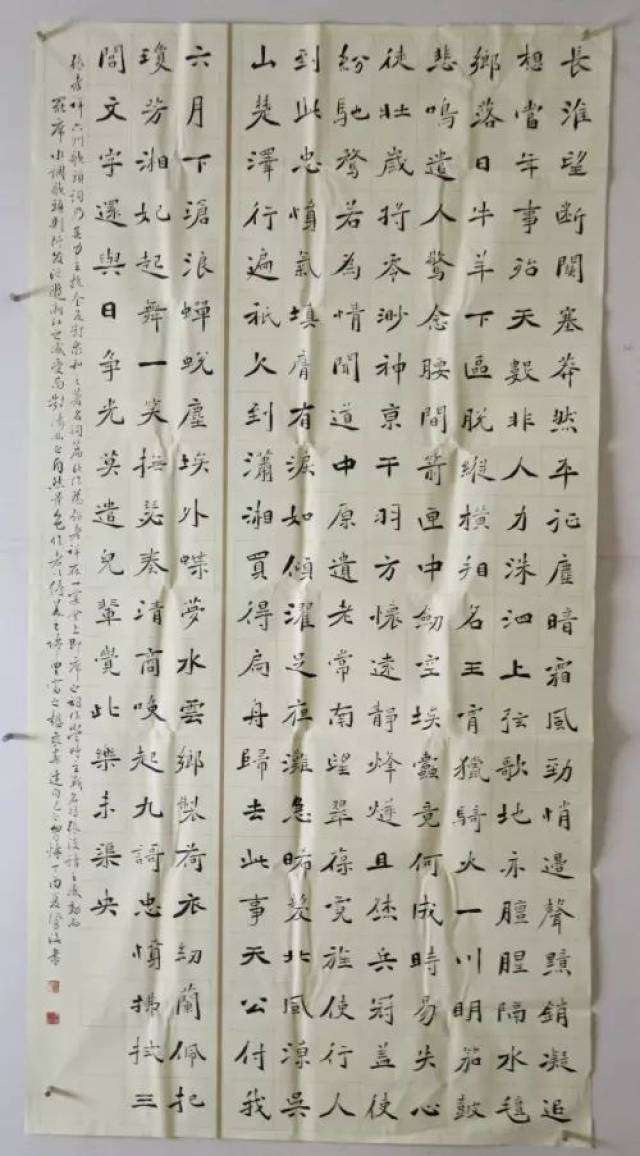 長淮望斷關塞莽然平征塵暗霜風勁悄邊聲黯銷凝追
想當年事殆天數非人力洙泗上弦歌地亦膻腥隔水氈
鄉落日牛羊下區脫縱橫看名王宵獵騎火一川明笳鼓
悲鳴遣人驚念腰間箭匣中劒空埃蠹竟何成時易失心
徒壯歲將零渺神京干羽方懷遠靜烽燧且休兵冠蓋使
紛馳騖若為情聞道中原遺老常南望翠葆霓旌使行人
到此忠憤氣填膺有淚如傾濯足夜灘急晞髮北風涼吳
山楚澤行遍祇欠到瀟湘買得扁舟歸去此事天公付我
六月下滄浪蟬蛻塵埃外蝶夢水雲鄉製荷衣紉蘭佩把
瓊芳湘妃起舞一笑撫瑟奏清商喚起九謌忠憤拂拭三
閭文字還與日爭光莫遣兒輩覺此樂未渠央
張孝祥六州歌頭詞乃其力主抗金反對求和之著名詞篇
罷席水調歌頭則